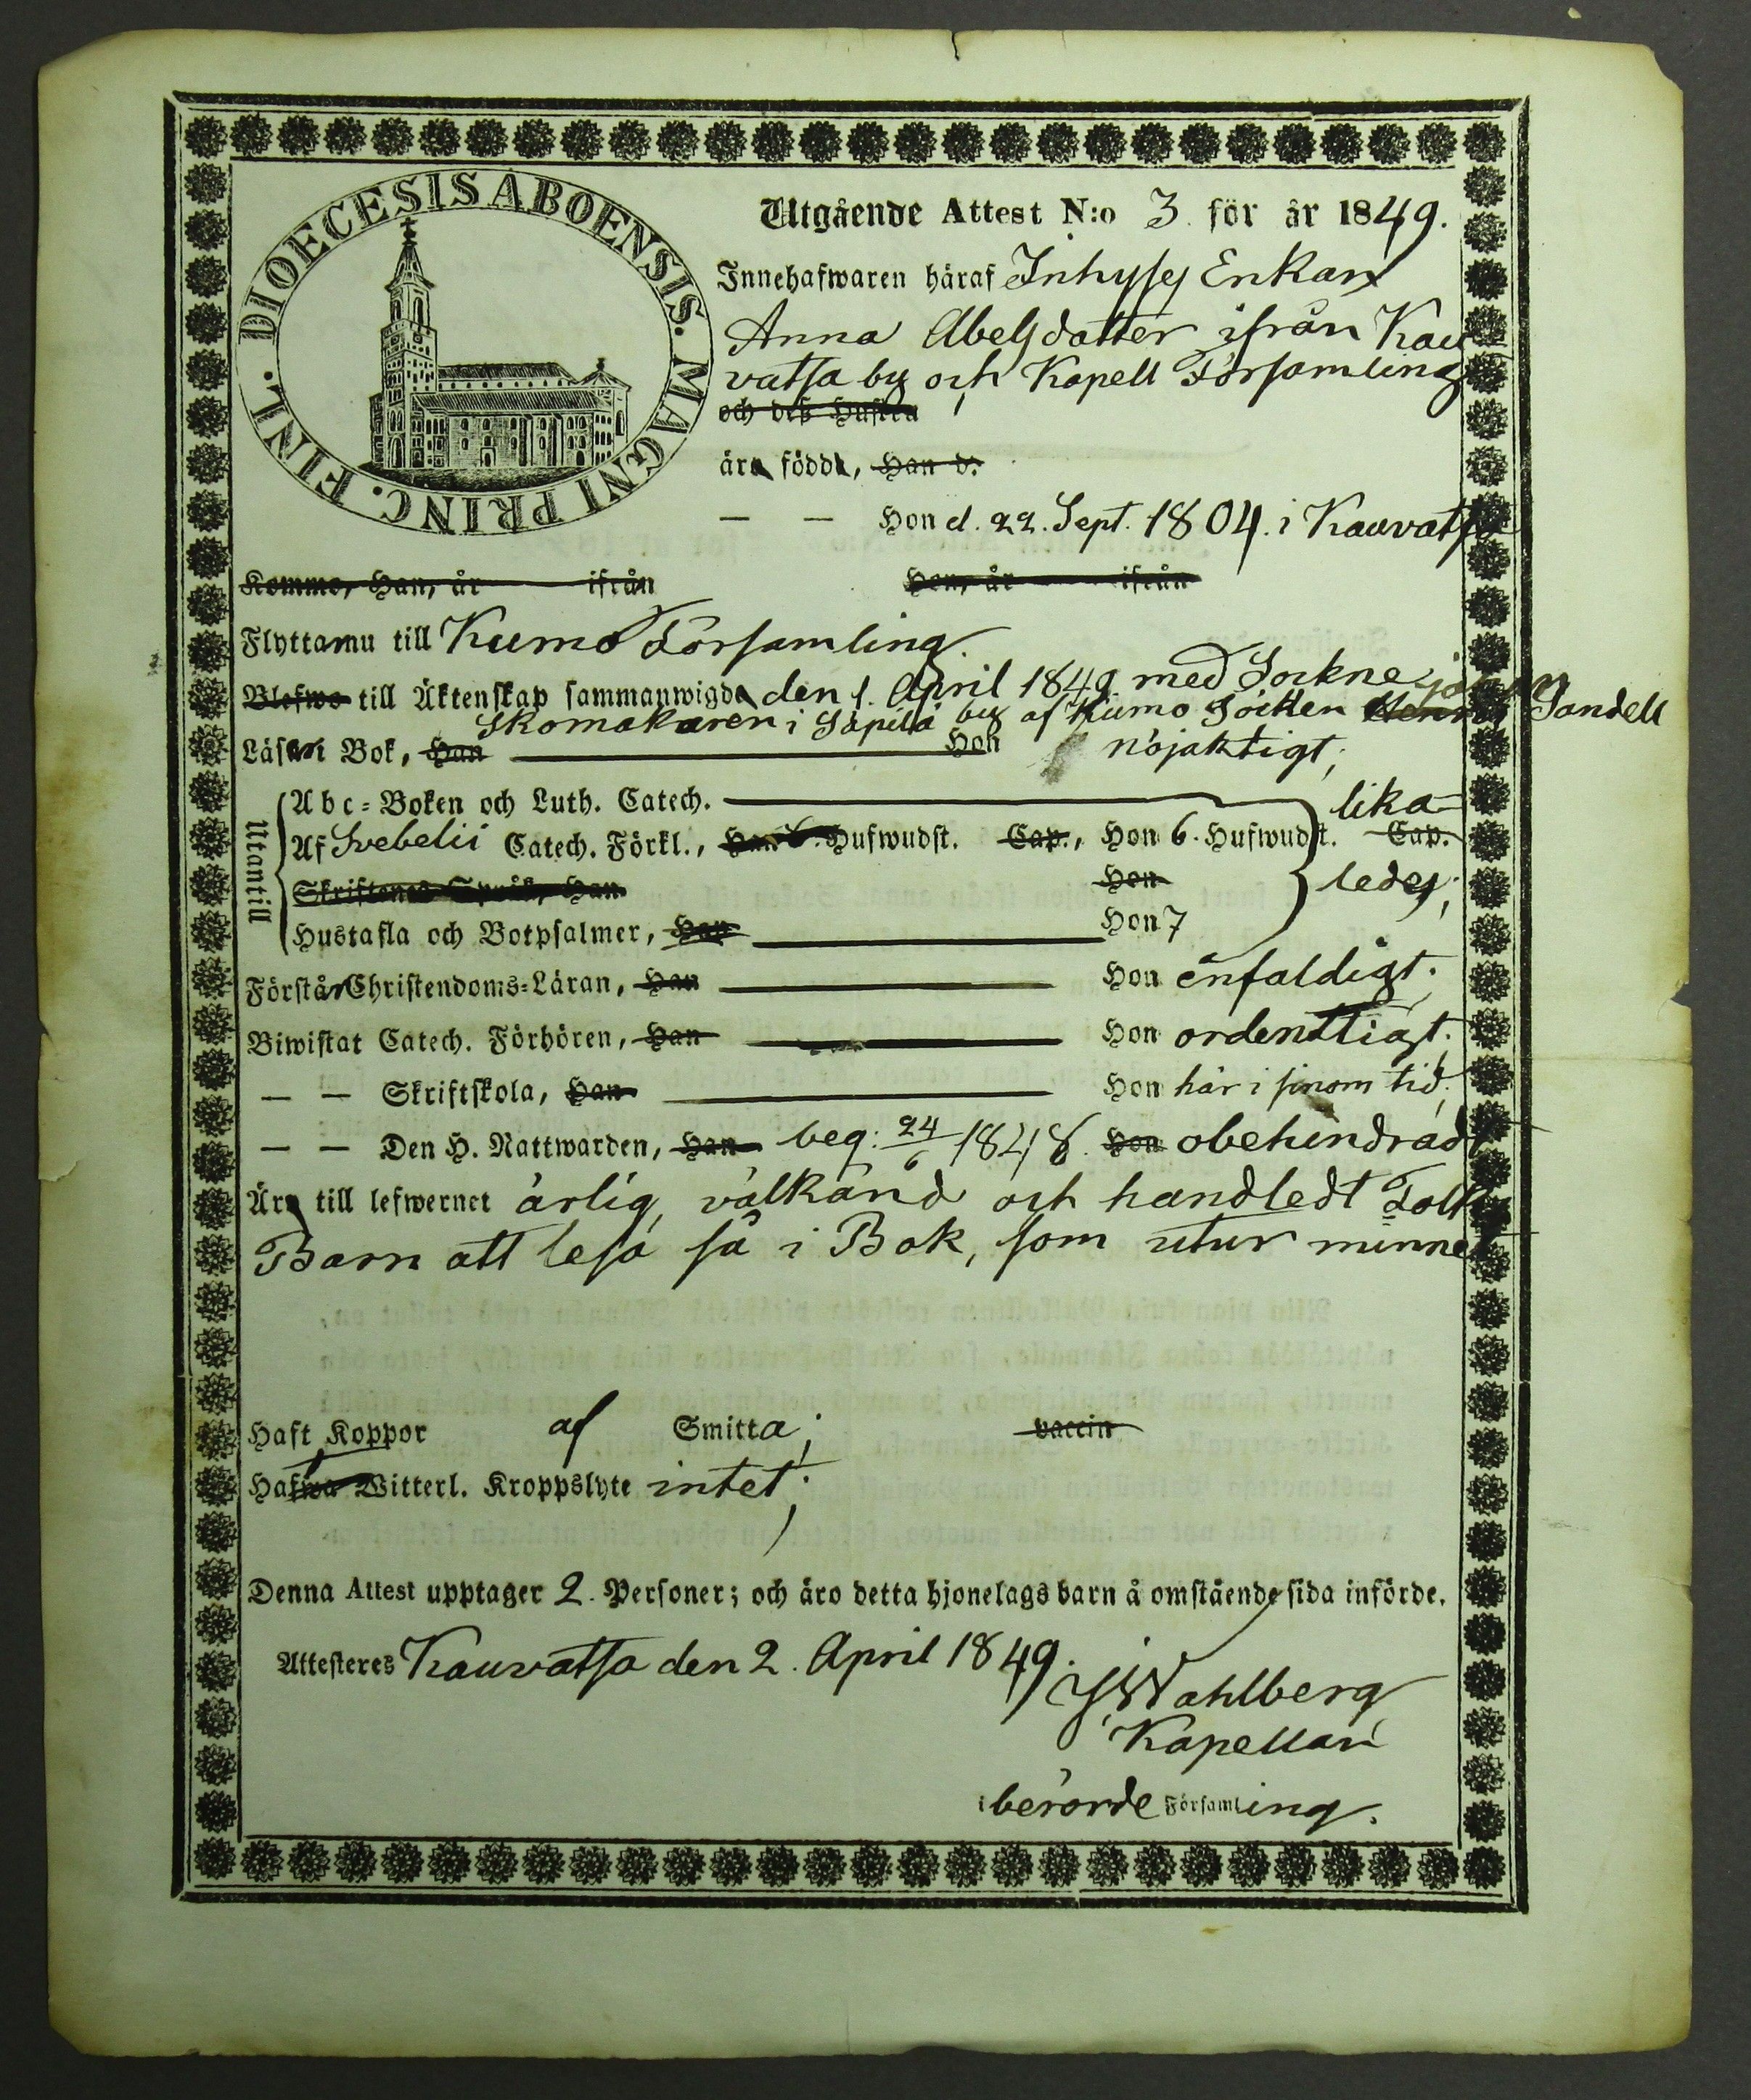 DIOECESIS ABOENSIS. MAGNI PRINC. FINL.
Utgående Attest N:o 3. för år 1849.
Innehafwaren häraf Inhyses Enkan
Anna Abelsdotter ifrån Kau
vatsa by och Kapell Församling
och deß Hustru
äro födde, Han d.
— — Hon d. 22. Sept. 1804. i Kauvatsa
Kommo, Han, år ifrån Hon, år ifrån
Flyttar nu till Kumo Församling.
Blefwo till Äktenskap sammanwigde den 1. April 1849. med Sockne
Skomakaren i Säpilä by af Kumo Socken Sandell
Läser i Bok, Han Hon nöjaktigt;
Utantill
Abc-Boken och Luth. Catech. lika=
Af Svebelii Catech. Förkl., Han 6. Hufwudst. Cap., Hon 6. Hufwudst. Cap.
Skriftenes Språk, Han Hon ledes;
Hustafla och Botpsalmer, Han Hon 7
Förstår Christendoms-Läran, Han Hon enfaldigt.
Biwistat Catech. Förhören, Han Hon ordentligt.
— — Skriftskola, Han Hon här i sinom tid.
— — Den H. Nattwarden, Han beg: 24/6 1848. Hon obehindrad
Äro till lefwernet ärlig, välkänd och handledt Folks
Barn att läsa så i Bok, som utur minnet
Haft Koppor af Smitta; vaccin
Hafwa Witterl. Kroppslyte intet;
Denna Attest upptager 2. Personer; och äro detta hjonelags barn å omstående sida införde.
Attesteres Kauvatsa den 2. April 1849.
Wahlberg
Kapellan
i berörde Församling.